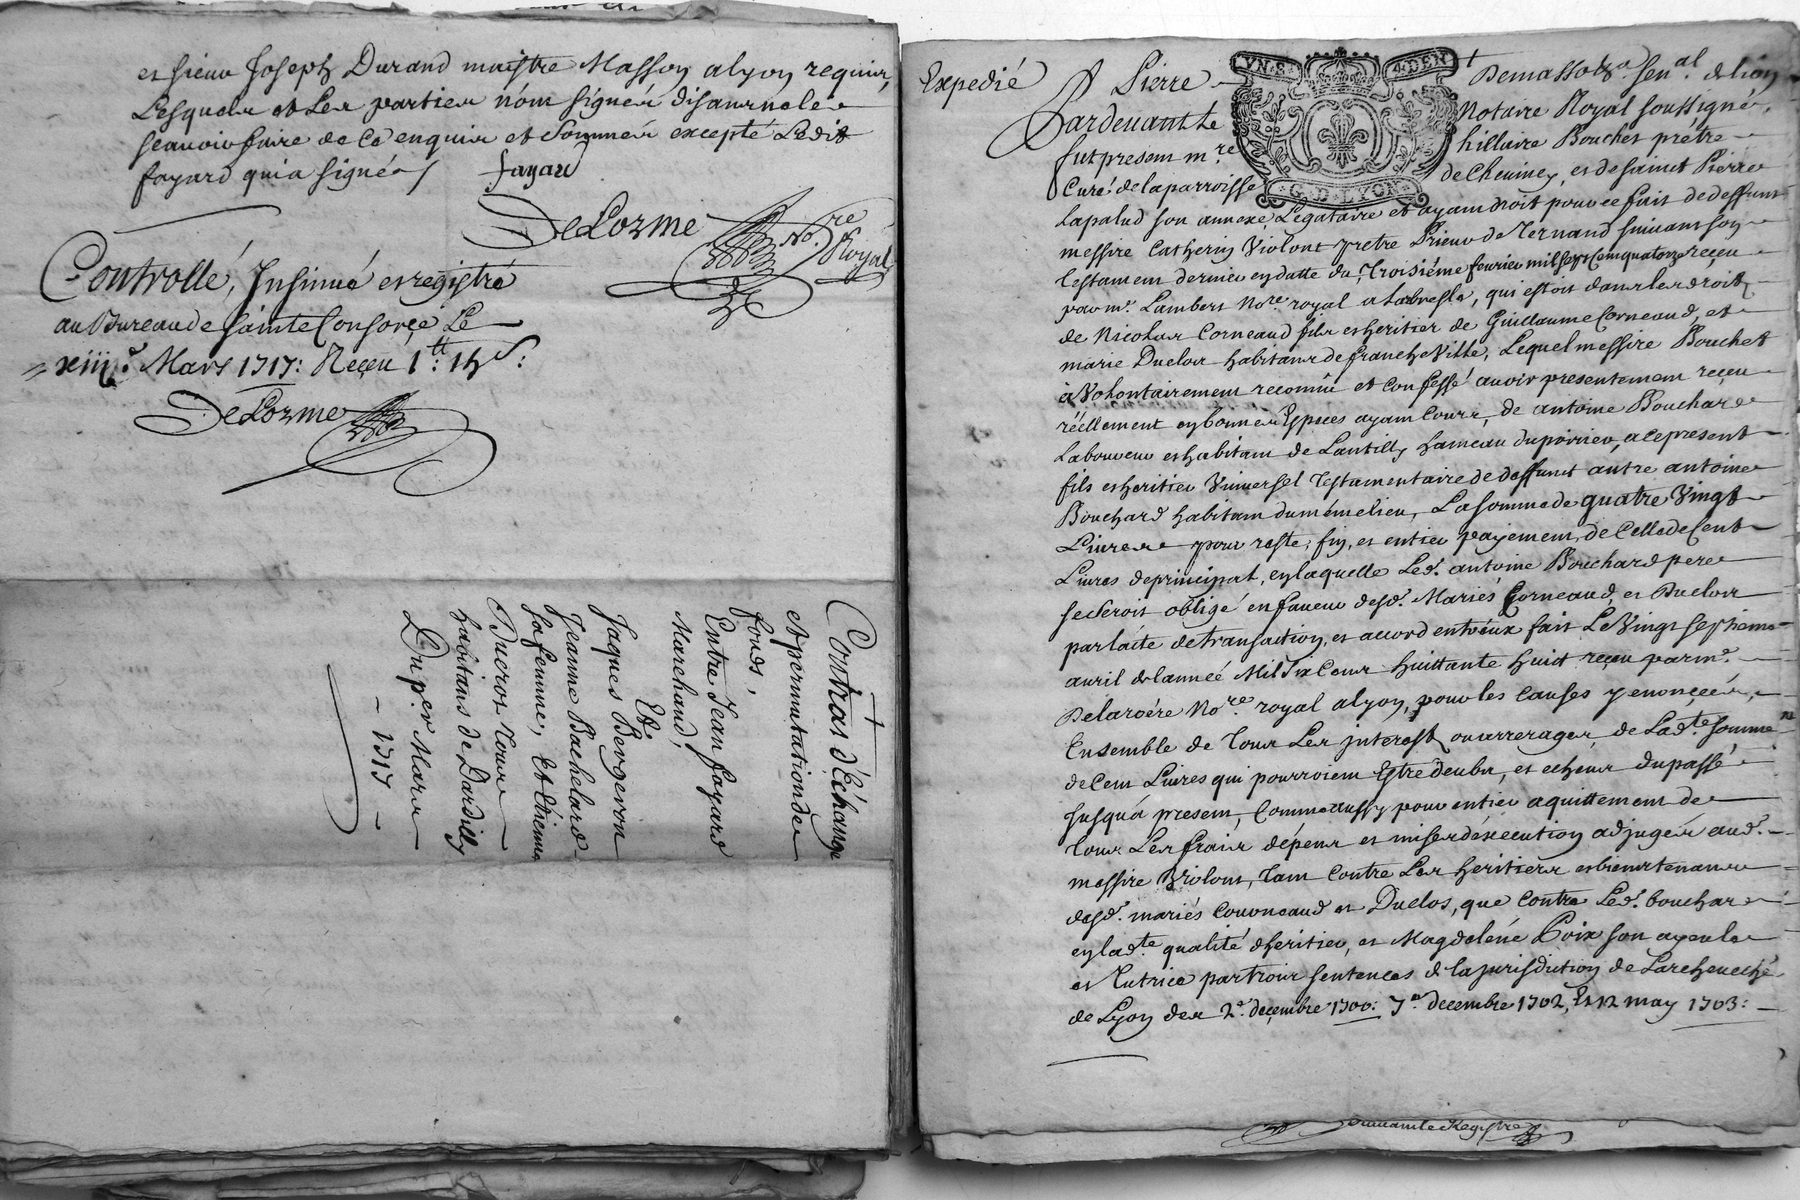 et sieur Joseph Durand maistre Masson a lyon requis,
Lesquels et Les parties n'ont signer
scauoir faire de ce enquis et sommés excepté Ledit
fayard qui a signé fayard
DeLorme No.re Royal
Controllé, Insinué et registré
au Bureau de sainte Consorçe Le
xiii.e Mars 1717: Reçeu 1.tt
DeLorme
Contras d'Échange
et permutation de
fonds,
Entre Jean fayard
Marchand,
Et
Jaques Bergeron
Jeanne Bachelard
sa femme, Et Etienne
habitans de Dardilly
Du p.er Mars
- 1717 -
Expedié
VN.S. 4.DEN
G.D.LYON
Pierre Demasso sen.al de lion
Pardeuant Le Notaire Royal soussigné,
fut present m.re hillaire Bouchet prêtre
Curé de la parroisse de Cheuiney, et de sainct Pierre
Lapalud son annexe, Legataire et ayant droit pour ce fait de deffunt
messire Catherin Violont prêtre Prieur de Ternand suiuant son
Testament dernier en datte du Troisiéme feurier mil sept cent quatorze reçeu
par m.e Lambert No.re royal a Labresle, qui estoit dans les droits
de Nicolas Corneaud fils et heritier de Guillaume Corneaud, et
marie Duclos habitans de francheville, Lequel messire Bouchet
à Volontairement reconnû et confessé auoir presentement reçeu
réellement en bonnes Espeçes ayant cours, de antoine Bouchard
Laboureur et habitant de Lantilly hameau du poirier, a ce present
fils et heritier Vniuersel Testamentaire de deffunct autre antoine
Bouchard habitant du même lieu, La somme de quatre Vingt
Liures pour reste, fin, et entier payement, de Celle de Cent
Liures de principal, en laquelle Led. antoine Bouchard pere
se seroit obligé en faueur desd. Mariés Corneaud, et Duclos
par l'acte de transaction, et accord entr'eux fait Le Vingt septieme
auril de l'année Mil Six Cens huittante huit reçeu par m.e
Delaroére No.re royal a lyon, pour les causes y enonçeés,
Ensemble de tous Les jnterest ou arrerages, de Lad.te somme
de Cent Liures qui pourroient Estre deubs, et echeus du passé
jusqu'a present, Comme aussy pour entier aquittement de
tous Les frais dépens et mises d'éxecution adjugés aud.
messire Violont, tant Contre Les heritiers et bientenans
desd. mariés Couroneaud et Duclos, que Contre Led. bouchard
en lad.te qualité d'heritier, et Magdelene Poix son ayeule
et Tutrice par trois sentences de la jurisdiction de L'archeueché
de Lyon des 2.e deçembre 1700: 7.e decembre 1702, Et 12 may 1703: